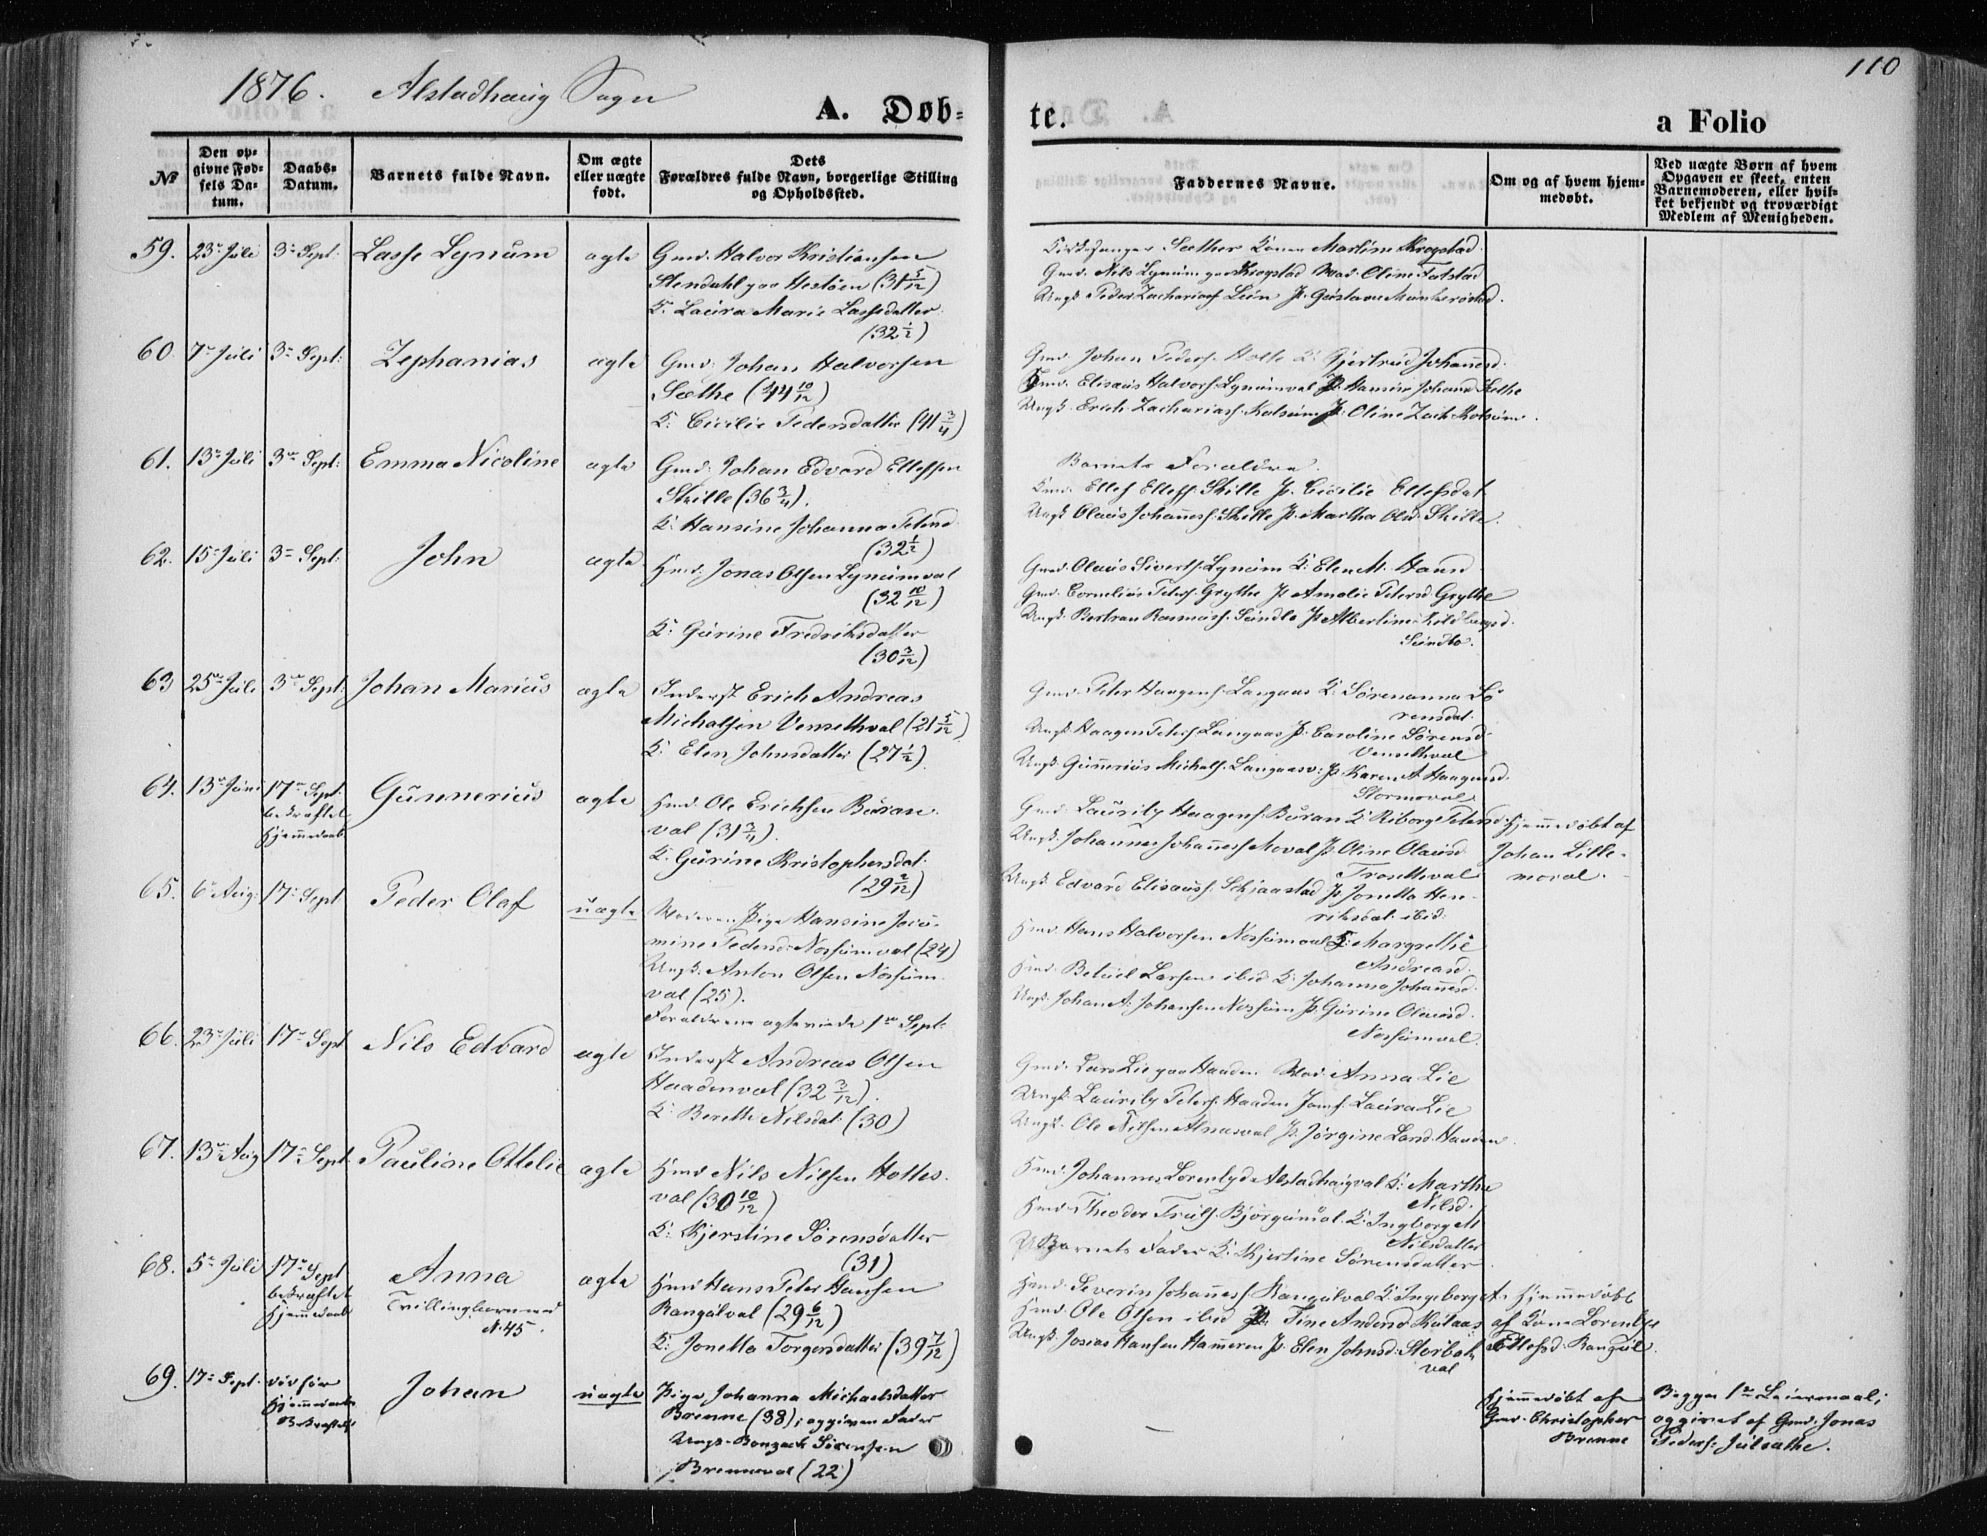 110
1876. Alstadhaug Sogn
A. Døb-
te.
a Folio
No
Den op-
givne Fød-
sels Da-
tum.
Daabs-
Datum.
Barnets fulde Navn.
Om ægte
eller uægte
født.
Dets
Forældres fulde Navn, borgerlige Stilling
og Opholdssted.
Faddernes Navne.
Om og af hvem hjem-
medøbt.
Ved uægte Børn af hvem
Opgaven er skeet, enten
Barnemoderen, eller hvil-
ket bekjendt og troværdigt
Medlem af Menigheden.
59. 23 Juli 3 Sept. Lasse Lynum ægte
Gmd. Halvor Kristiansen
Stendahl paa Hestøen (31 5/12)
K. Laura Marie Lassedatter
(32 1/2)
Kirkesanger Sæther Konen Martine Krogstad
Gmd. Nils Lynum paa Krogstad Mad. Oline Fatstad
Ungk. Peder Zachariass. Lein P. Gustava
60. 7 Juli 3 Sept. Zephanias ægte
Gmd. Johan Halvorsen
Sæthe (44 10/12)
K. Cicilie Pedersdatter (41 3/4)
Gmd. Johan Peders. Holte K. Gjertrud Johannesd.
Hmd. Elisæus Halvors. Lynumval P. Hansine Johansd. Sæthe
Ungk. Erich Zachariass. Kolsum P. Oline Zach. Kolsum.
61. 13 Juli 3 Sept. Emma Nicoline ægte
Gmd. Johan Edvard Ellefsen
Skille (36 3/4).
K. Hansine Johanna Petersd.
(32 1/2)
Barnets Forældre.
Kmd. Ellef Ellefs. Skille P. Cicilie Ellefsdat.
Ungk. Olaus Johanness. Skille P. Martha Olsd. Skille.
62. 15 Juli 3 Sept. John ægte
Hmd. Jonas Olsen Lynumval
(32 10/12)
K. Gurine Fredriksdatter
(30 3/12)
Gmd. Olaus Siverts. Lynum K. Elen M. Hansd
Gmd. Cornelius Peters. Grythe P. Amalie Petersd Grythe
Ungk. Bertran Rasmus. Sundbo P. Albertine
Sundbo.
63 25 Juli 3 Sept. Johan Marius ægte
Inderst Erich Andreas
Michalsen Vensethval (21 5/12)
K. Elen Johnsdatter (27 1/2)
Gmd. Peter Haagens. Langaas K. Sørenanna Sø-
rensdat.
Ungk. Haagen Peters. Langaas P. Caroline Sørensd.
Vensethval
Ungk. Gunnerius Michals. Langaasv. P. Karen A. Haagensd.
Stormoval.
64. 13 Juni 17 Sept. Gunnerius ægte
bekræftet
Hjemmedaab
Hmd. Ole Erichsen Buran-
val (31 3/4).
K. Gurine Kristophersdat.
(29 2/12)
Gmd. Lauritz Haagens. Buran K. Riborg Petersd.
Ungk. Johannes Johanness. Moval P. Oline Olausd.
Trosethval
Ungk. Edvard Elisæus. Skjaastad P. Jonetta Hen-
riksdat. ibid.
Hjemmedøbt af
Johan Lille-
moval.
65. 6 Aug. 17 Sept. Peder Olaf uægte
Moderen Pige Hansine Jero-
mine Pedersd. Nossumval (24)
Ungk. Anton Olsen Nossum-
val (25).
Forældrene ægteviede 1ste Sept.
Hmd. Hans Halvorsen Nossumval K. Margrethe
Andreasd.
Hmd. Betuel Larsen ibid K. Johanna Johannesd.
Ungk. Johan A. Johansen Nossum P. Gurine Olausd.
Nossumval.
66. 23 Juli 17 Sept Nils Edvard ægte
Inderst Andreas Olsen
Haadenval (32 3/12).
K. Berette Nilsdat. (30)
Gmd. Lars Lie paa Haaden Mad. Anna Lie
Ungk. Lauritz Peters. Haaden Jomf. Laura Lie
Ungk. Ole Nilsen Alnæsval P. Jørgine Larsd. Haaden.
67. 13 Aug 17 Sept. Pauline Ottelie ægte
Hmd Nils Nilsen Holtes-
val (30 10/12)
K. Kjerstine Sørensdatter
(31)
Hmd. Johannes Alstadhaugval K. Marthe
Nilsd.
Hmd. Theodor K. Ingborg M
Nilsdatter
Barnets Fader K. Kjerstine Sørensdatter
68. 5 Juli 17 Sept Anna ægte
bekræftet
Hjemmedaab
Trillingbarn med
N. 45.
Hmd Hans Peter Hansen
Rangulval (29 6/12)
K. Jonetta Torgersdatter (39 7/12)
Hmd. Severin Johanness. Rangulval K. Ingeborg A.
Hmd. Ole Olsen ibid P. Tine Andersd
Ungk. Josias Hansen Hammeren P. Elen Johnsd.
val
Hjemmedøbt
af Kone Lorentze
Ellefsd. Rangul.
69. 17 Sept. Johan uægte
Hjemmedaab
Bekræftelse
Pige Johanna Michaelsdatter
Brenne (38); opgiven Fader
Ungk. Bonzach Sørensen
Brenneval (22)
Hjemmedøbt af
Gmd. Christopher
Brenne
Begges 1ste Leiermaal;
opgivet af Gmd. Jonas
Peders. Julsæthe.